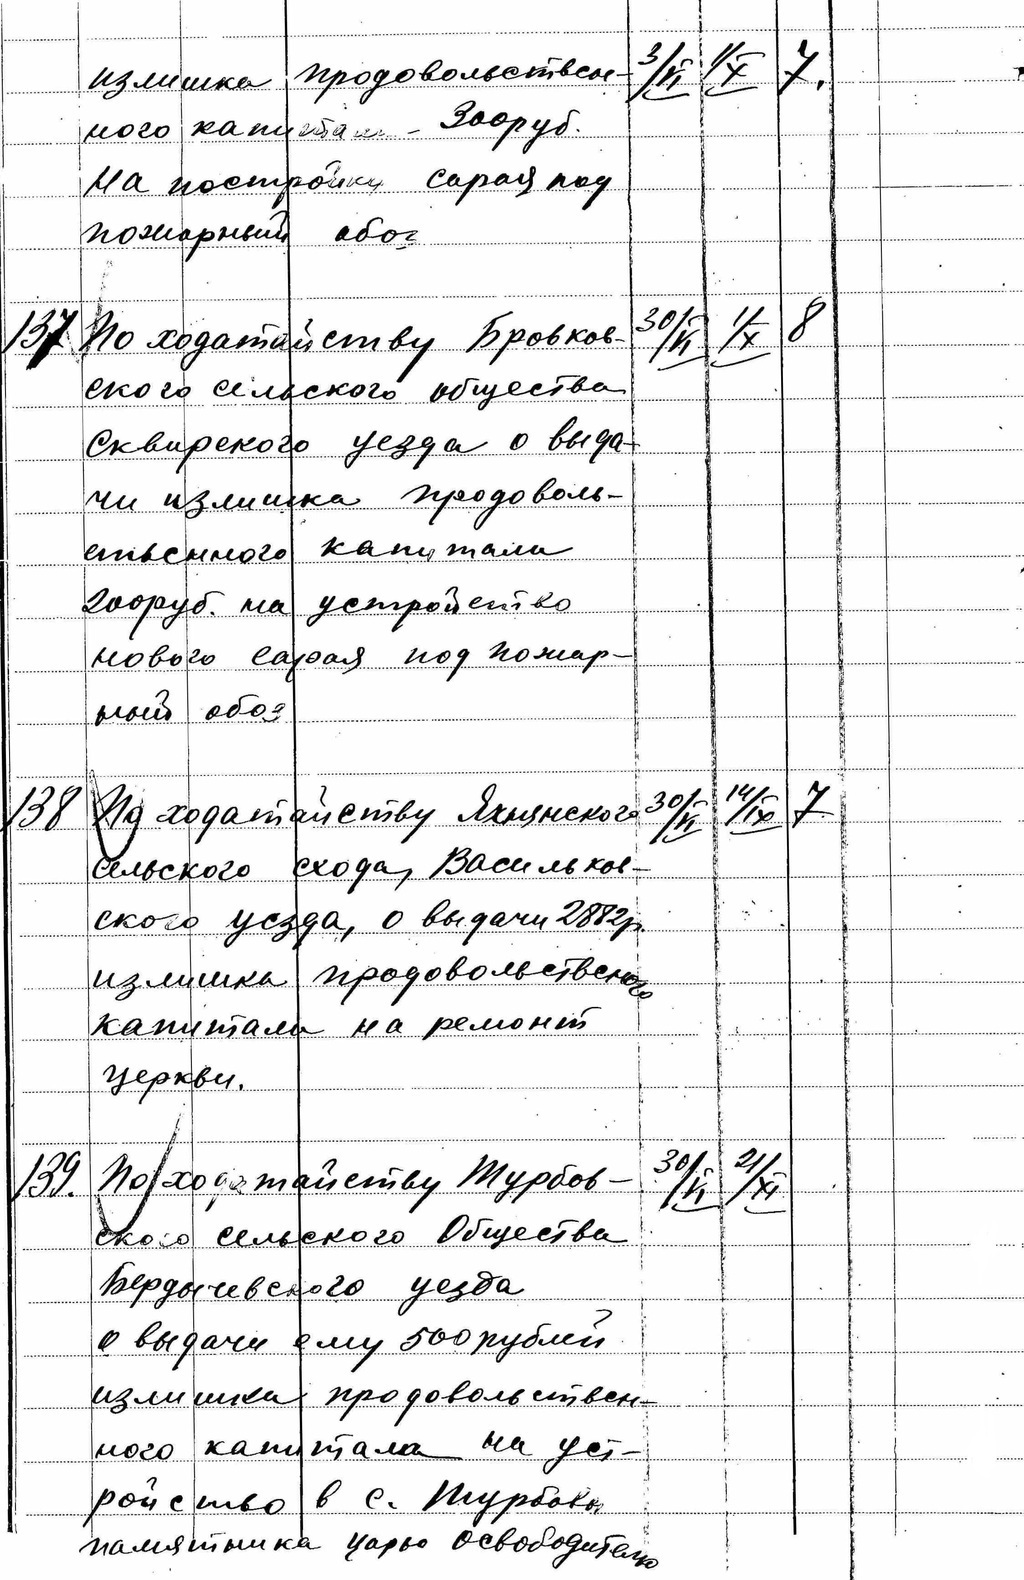 излишка продовольствен- 3/VI 1/X 7.
ного капитала - 300руб.
на постройку сарая под
пожарный обоз
137 По ходатайству Бровков- 30/VI 1/X 8
ского сельского общества
Сквирского уезда о выда-
чи излишка продоволь-
ственного капитала
200руб. на устройство
нового сарая под пожар-
ный обоз
138 По ходатайству Яхнянского 30/VI 14/IX 7
сельского схода, Васильков-
ского уезда, о выдачи 2882р.
излишка продовольственого
капитала на ремонт
церкви.
139. По ходатайству Турбов- 30/VI 21/XI
ского сельского Общества
Бердычевского уезда
о выдачи ему 500 рублей
излишка продовольствен-
ного капитала на уст-
ройство в с. Турбовы
памятника царю освободителю